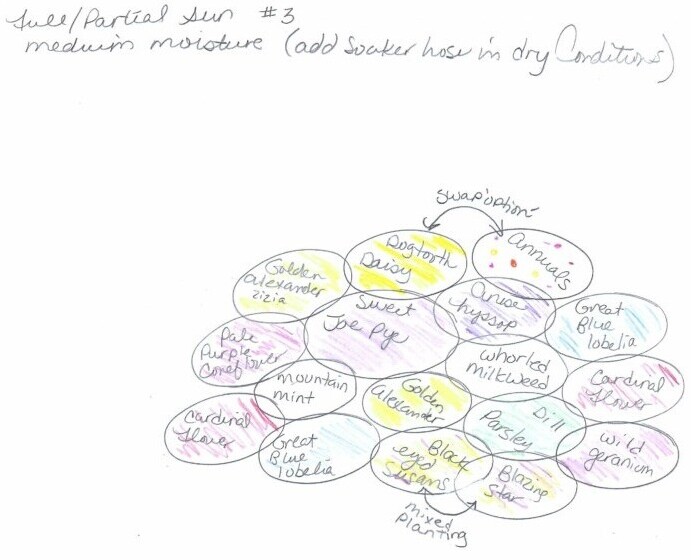 Full/Partial Sun #3
medium moisture (add Soaker hose in dry Conditions)
swap option
Dogtooth
Daisy
Annuals
Golden
alexander
zizia
Sweet
Joe Pye
Anise
hyssop
Great
Blue
lobelia
Pale
Purple
Coneflower
mountain
mint
Golden
alexander
whorled
milkweed
Cardinal
flower
Cardinal
flower
Great
Blue
lobelia
Black
eyed
Susans
Dill
Parsley
Blazing
Star
wild
geranium
mixed
planting